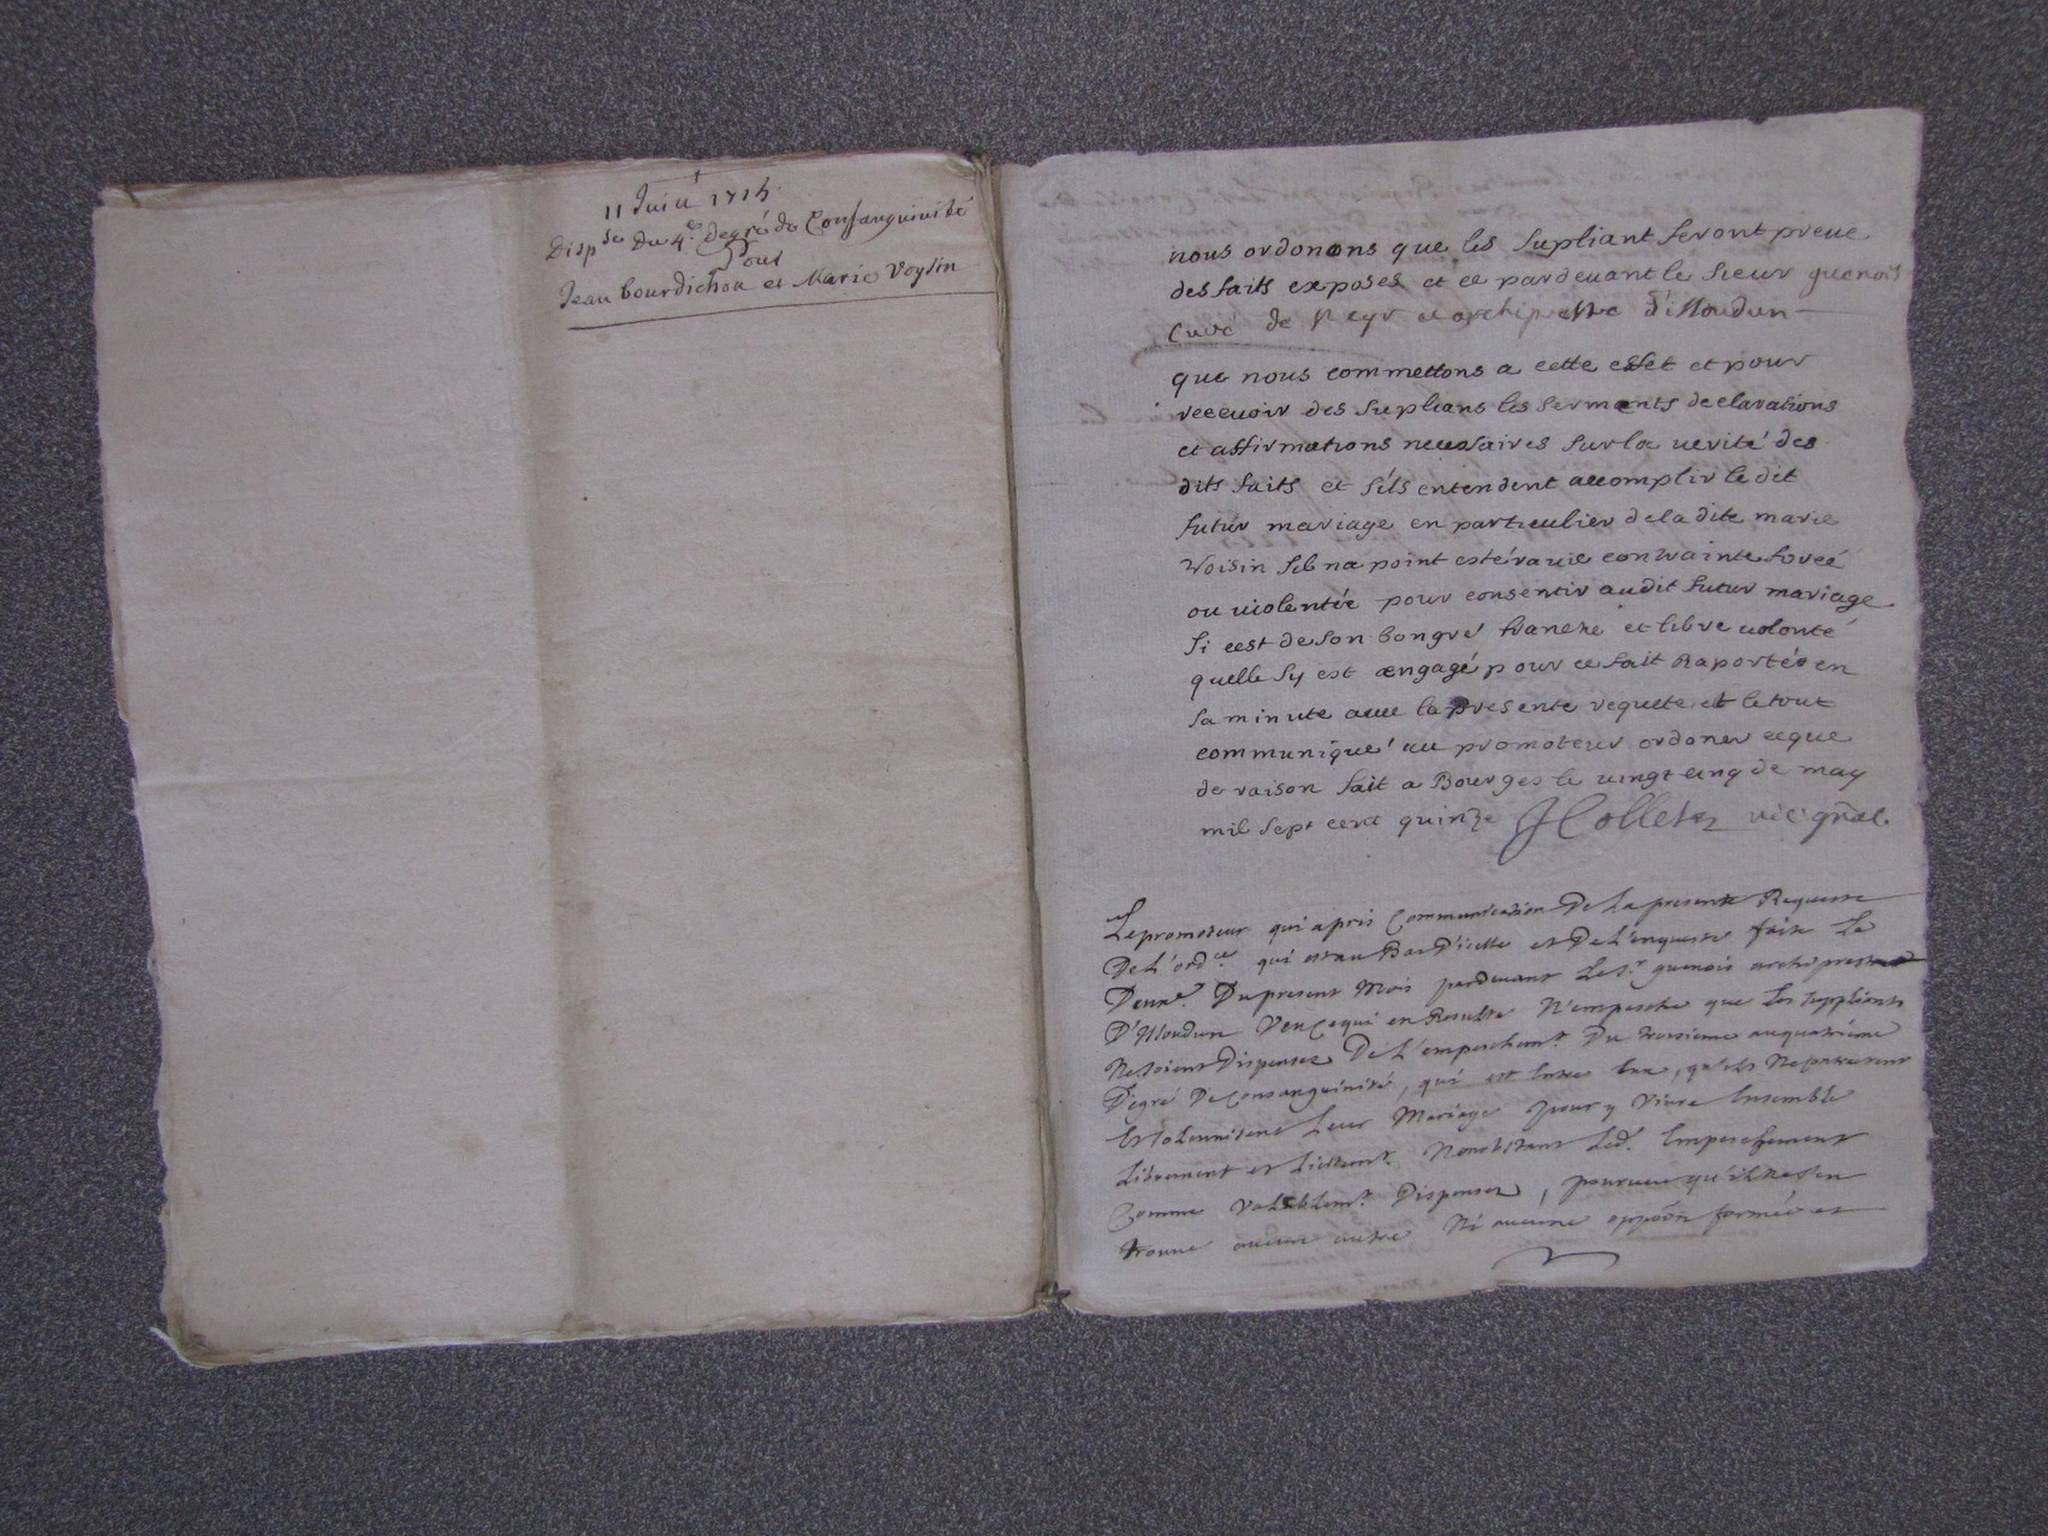 11 Juin 1715
Disp.se Du 4.e degré de Consanguinité
Pour
Jean bourdichon et Marie Voysin
nous ordonons que les supliant feront preue
des faits exposes et ce pardeuant le sieur guenois
Curé de et archiprestre d'issoudun
que nous commettons a cette effet et pour
receuoir des suplians les serments declarations
et affirmations necessaires sur la uerité des
dits faits et s'ils entendent accomplir le dit
futur mariage en particulier de la dite marie
Voisin sel na point esté rauie contrainte forcé
ou uiolentée pour consentir audit futur mariage
si cest de son bongré franche et libre uolonté
quelle sy est engagé pour ce fait Raportée en
sa minute auec la presente requete et le tout
communiqué au promoteur ordoner ceque
de raison fait a Bourges le uingt cinq de may
mil sept cent quinze J Collet vic gnãl.
Le promoteur qui apris Communication De La presente Requeste
De L'ord.ce qui est au Bas D'icelle et De L'enqueste faite Le
Deux.e Du present Mois pardeuant Le S.r guenois archiprestre
D'Issoudun Veu Cequi en Resulte N'empesche que Les suppliants
Ne soient Dispensez De L'empeschem.t Du troisieme au quatrieme
Degré De Consanguinité, qui est Entre Eux, qu'ils Ne contractent
Et solennisent Leur Mariage pour y Viure Ensemble
Librement et Licitem.t Nonobstant Led. Empeschement
Comme Valablem.t Dispensez, pourueu qu'il ne s'en
trouue aucun autre Ni aucune oppõon formée et